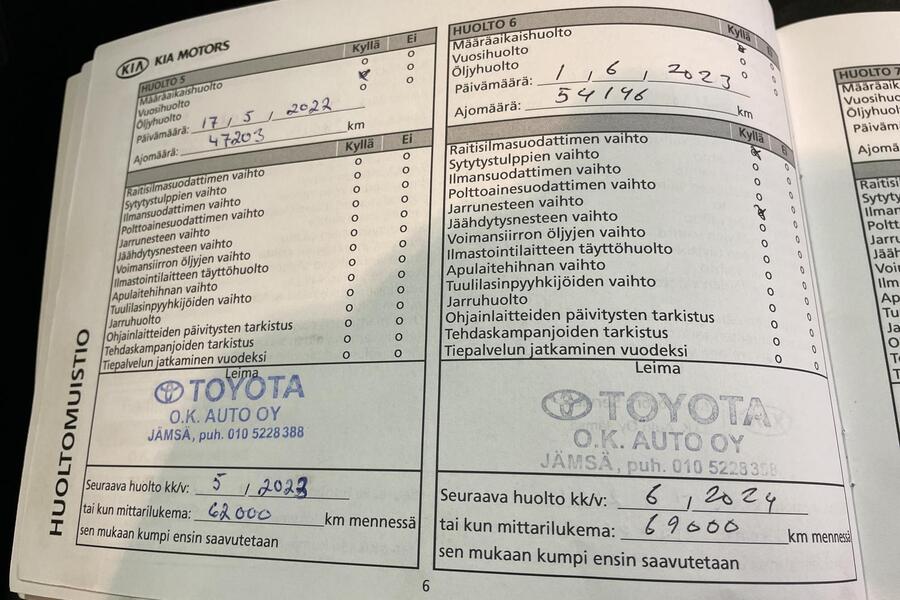 KIA KIA MOTORS
HUOLTO 5 Kyllä Ei
Määräaikaishuolto o o
Vuosihuolto x o
Öljyhuolto o
Päivämäärä: 17, 5, 2022
Ajomäärä: 47203 km
Kyllä Ei
Raitisilmasuodattimen vaihto o o
Sytytystulppien vaihto o o
Ilmansuodattimen vaihto o o
Polttoainesuodattimen vaihto o o
Jarrunesteen vaihto o o
Jäähdytysnesteen vaihto o o
Voimansiirron öljyjen vaihto o o
Ilmastointilaitteen täyttöhuolto o o
Apulaitehihnan vaihto o o
Tuulilasinpyyhkijöiden vaihto o o
Jarruhuolto o o
Ohjainlaitteiden päivitysten tarkistus o o
Tehdaskampanjoiden tarkistus o o
Tiepalvelun jatkaminen vuodeksi o o
Leima
TOYOTA
O.K. AUTO OY
JÄMSÄ, puh. 010 5228388
Seuraava huolto kk/v: 5, 2023
tai kun mittarilukema: 62000 km mennessä
sen mukaan kumpi ensin saavutetaan
HUOLTOMUISTIO
HUOLTO 6 Kyllä Ei
Määräaikaishuolto x
Vuosihuolto o
Öljyhuolto o
Päivämäärä: 1, 6, 2023
Ajomäärä: 54196 km
Kyllä Ei
Raitisilmasuodattimen vaihto x o
Sytytystulppien vaihto o o
Ilmansuodattimen vaihto o o
Polttoainesuodattimen vaihto o o
Jarrunesteen vaihto x o
Jäähdytysnesteen vaihto o o
Voimansiirron öljyjen vaihto o o
Ilmastointilaitteen täyttöhuolto o o
Apulaitehihnan vaihto o o
Tuulilasinpyyhkijöiden vaihto o o
Jarruhuolto o o
Ohjainlaitteiden päivitysten tarkistus o o
Tehdaskampanjoiden tarkistus o o
Tiepalvelun jatkaminen vuodeksi o o
Leima
TOYOTA
O.K. AUTO OY
JÄMSÄ, puh. 010 5228388
Seuraava huolto kk/v: 6, 2024
tai kun mittarilukema: 69000 km mennessä
sen mukaan kumpi ensin saavutetaan
6
HUOLTO 7